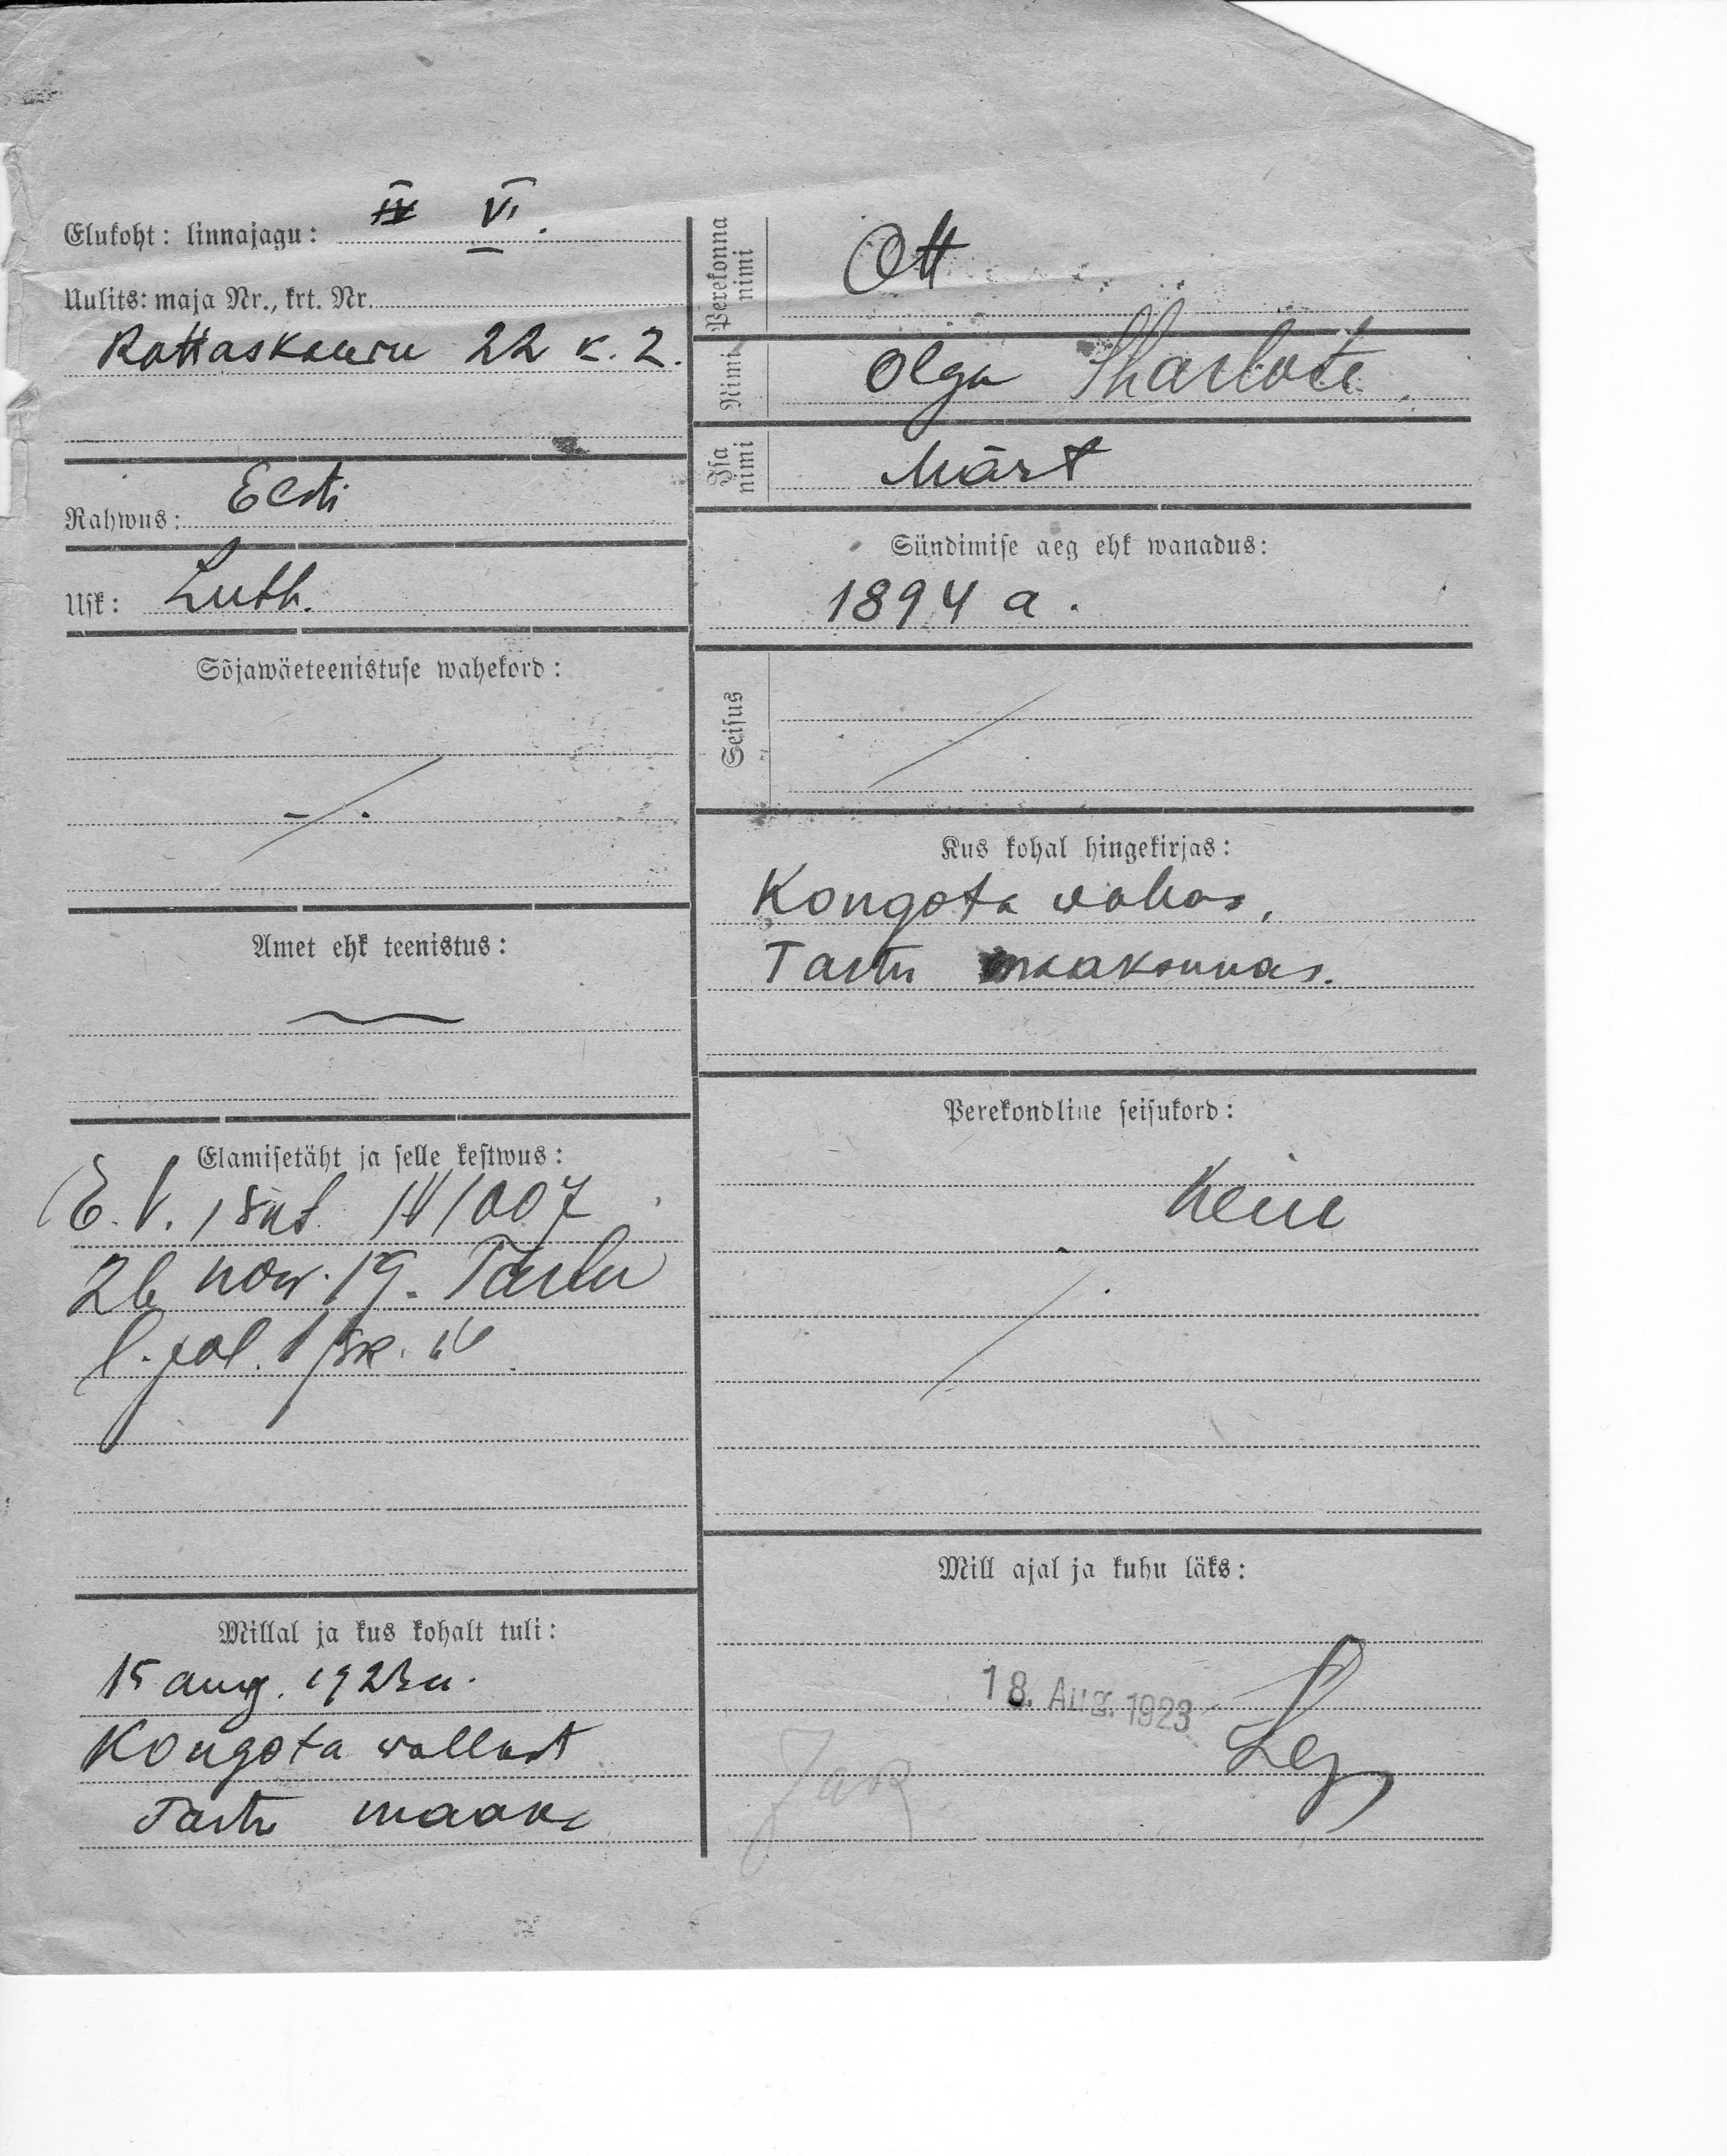 Elukoht: linnajagu: IV VI.
Uulits: maja Nr., krt. Nr.
Rattaskaevu 22 k. 2.
Rahwus: Eesti
Usk: Luth.
Sõjawäeteenistuse wahekord:
Amet ehk teenistus:
Elamisetäht ja selle kestwus:
E.V. isikut. 1007
26 now. 19. Tartu
l. pol. jsk.
Millal ja kus kohalt tuli:
15 aug. 1923 a.
Kongota wallast
Tartu maak.
Perekonna nimi Ott
Nimi Olga Sharlote
Isa nimi Märt
Sündimise aeg ehk wanadus:
1894 a.
Seisus
Kus kohal hingekirjas:
Kongota wallas,
Tartu maakonnas.
Perekondline seisukord:
Mill ajal ja kuhu läks:
18. Aug. 1923